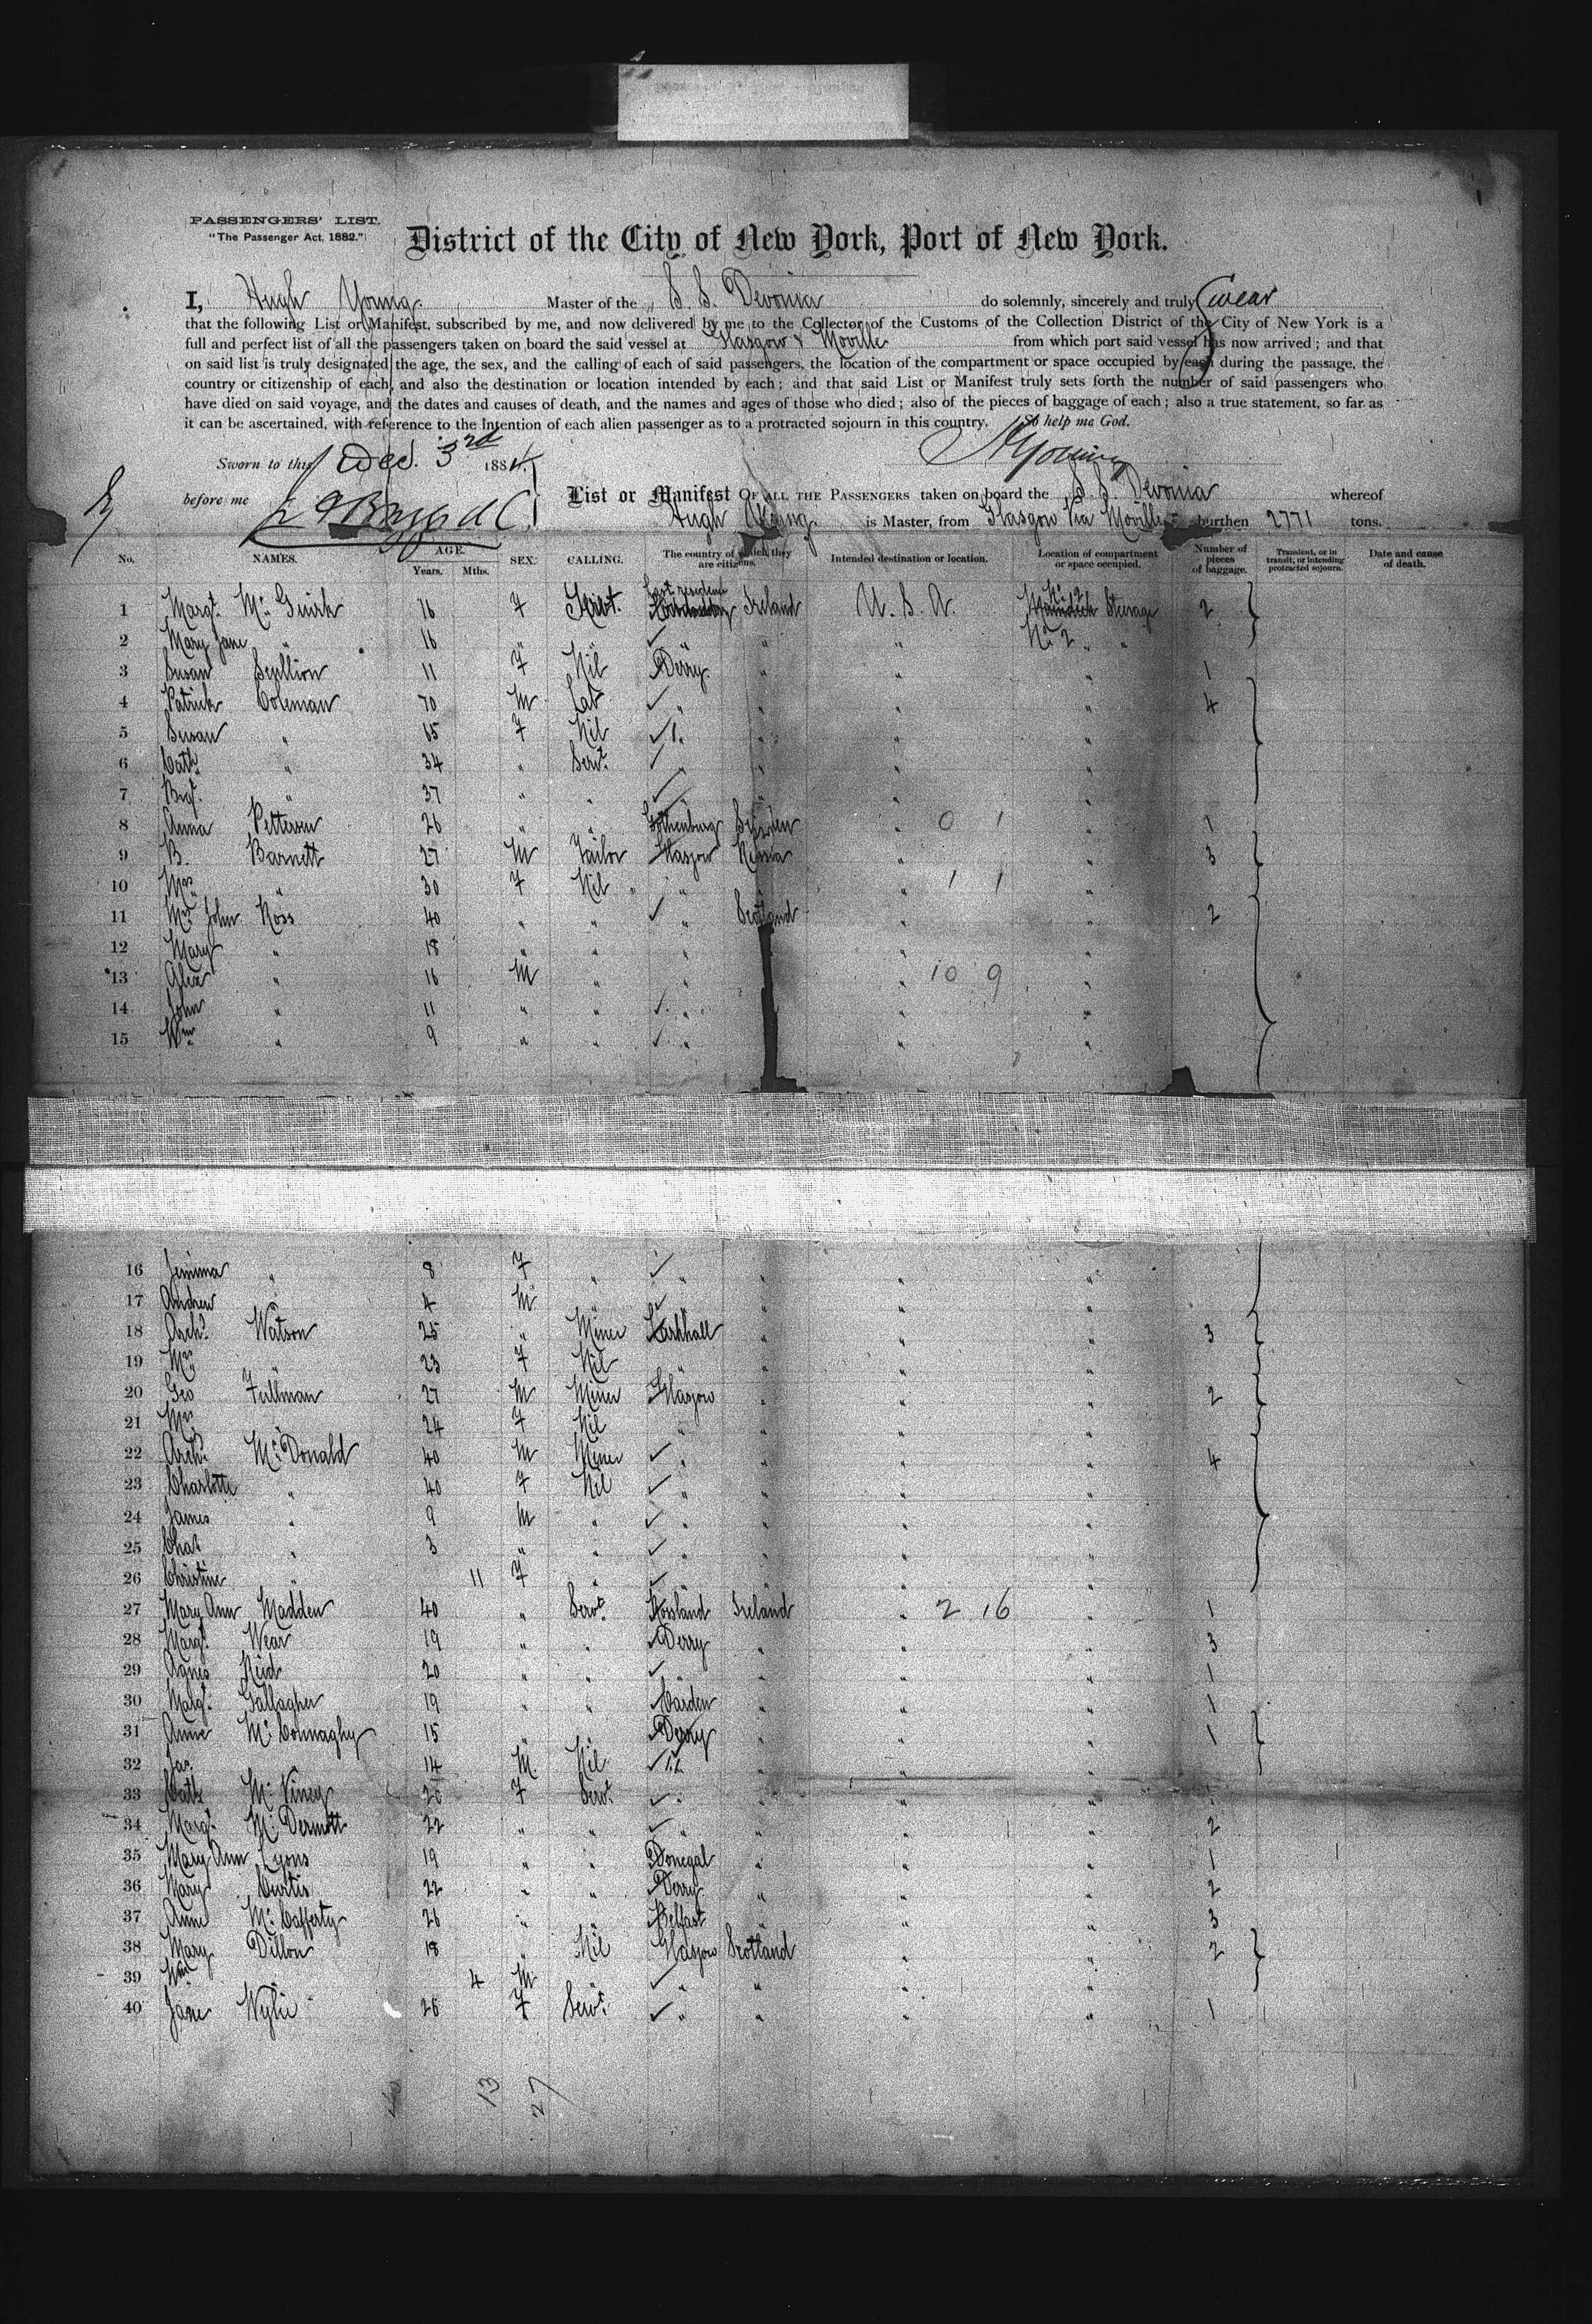 PASSENGERS' LIST.
"The Passenger Act, 1882."
District of the City of New York, Port of New York.
I, Hugh Young Master of the S. S. Devonia do solemnly, sincerely and truly Swear
that the following List or Manifest, subscribed by me, and now delivered by me to the Collector of the Customs of the Collection District of the City of New York is a
full and perfect list of all the passengers taken on board the said vessel at Glasgow & Moville from which port said vessel has now arrived; and that
on said list is truly designated the age, the sex, and the calling of each of said passengers, the location of the compartment or space occupied by each during the passage, the
country or citizenship of each, and also the destination or location intended by each; and that said List or Manifest truly sets forth the number of said passengers who
have died on said voyage, and the dates and causes of death, and the names and ages of those who died; also of the pieces of baggage of each; also a true statement, so far as
it can be ascertained, with reference to the intention of each alien passenger as to a protracted sojourn in this country. So help me God.
Sworn to this Dec. 3rd 1884 H Young
before me List or Manifest OF ALL THE PASSENGERS taken on board the S. S. Devonia whereof
Hugh Young is Master, from Glasgow Via Moville burthen 2771 tons.
No. NAMES. AGE. Years. Mths. SEX. CALLING. The country of which they are citizens. Intended destination or location. Location of compartment or space occupied. Number of pieces of baggage. Transient, or in transit, or intending protracted sojourn. Date and cause of death.
Last resident
1 Margt. Mc Guirk 16 F Ireland U. S. A. No. 2 Steerage 2
2 Mary Jane " 16 " " " No. 2 " "
3 Susan Scullion 11 F Nil Derry " " " 1
4 Patrick Coleman 70 M Lab " " " " 4
5 Susan " 65 F Nil " " " "
6 Cath. " 34 " Servt. " " " "
7 Brgt. " 37 " " " " " "
8 Anna Petterson 26 " " Gothenburg Sweden " 0 1 " 1
9 B. Barnett 27 M Tailor Glasgow Russia " " 3
10 Mrs " 30 F Nil " " " 1 1 "
11 Mrs John Ross 40 " " " Scotland " " 2
12 Mary " 18 " " " " "
13 Alex " 16 M " " " 10 9 "
14 John " 11 " " " " "
15 Wm " 9 " " " " "
16 Jemima " 8 F " " " " "
17 Andrew " 4 M " " " " "
18 Archd. Watson 25 " Miner Larkhall " " " 3
19 Mrs " 23 F Nil " " " "
20 Geo Fullman 27 M Miner Glasgow " " " 2
21 Mrs " 24 F Nil " " " "
22 Archd. McDonald 40 M Miner " " " " 4
23 Charlotte " 40 F Nil " " " "
24 James " 9 M " " " " "
25 Chas " 3 " " " " " "
26 Christine " 11 F " " " " "
27 Mary Ann Madden 40 " Servt. Ireland " 2 16 " 1
28 Margt. Wear 19 " " Derry " " " 3
29 Agnes Reid 20 " " " " " " 1
30 Margt. Gallagher 19 " " Carden " " " 1
31 Annie McConnaghy 15 " " Derry " " " 1
32 Jas. " 14 M. Nil " " " "
33 Cath 20 F Servt. " " " "
34 Margt. McDermott 22 " " " " " " 2
35 Mary Ann Lyons 19 " " Donegal " " " 1
36 Mary Curtis 22 " " Derry " " " 2
37 Anne McCafferty 26 " " Belfast " " " 3
38 Mary Dillon 18 " Nil Glasgow Scotland " " 2
39 Wm " 4 M " " " " "
40 Jane Wylie 26 F Servt. " " " " 1
40 13 27